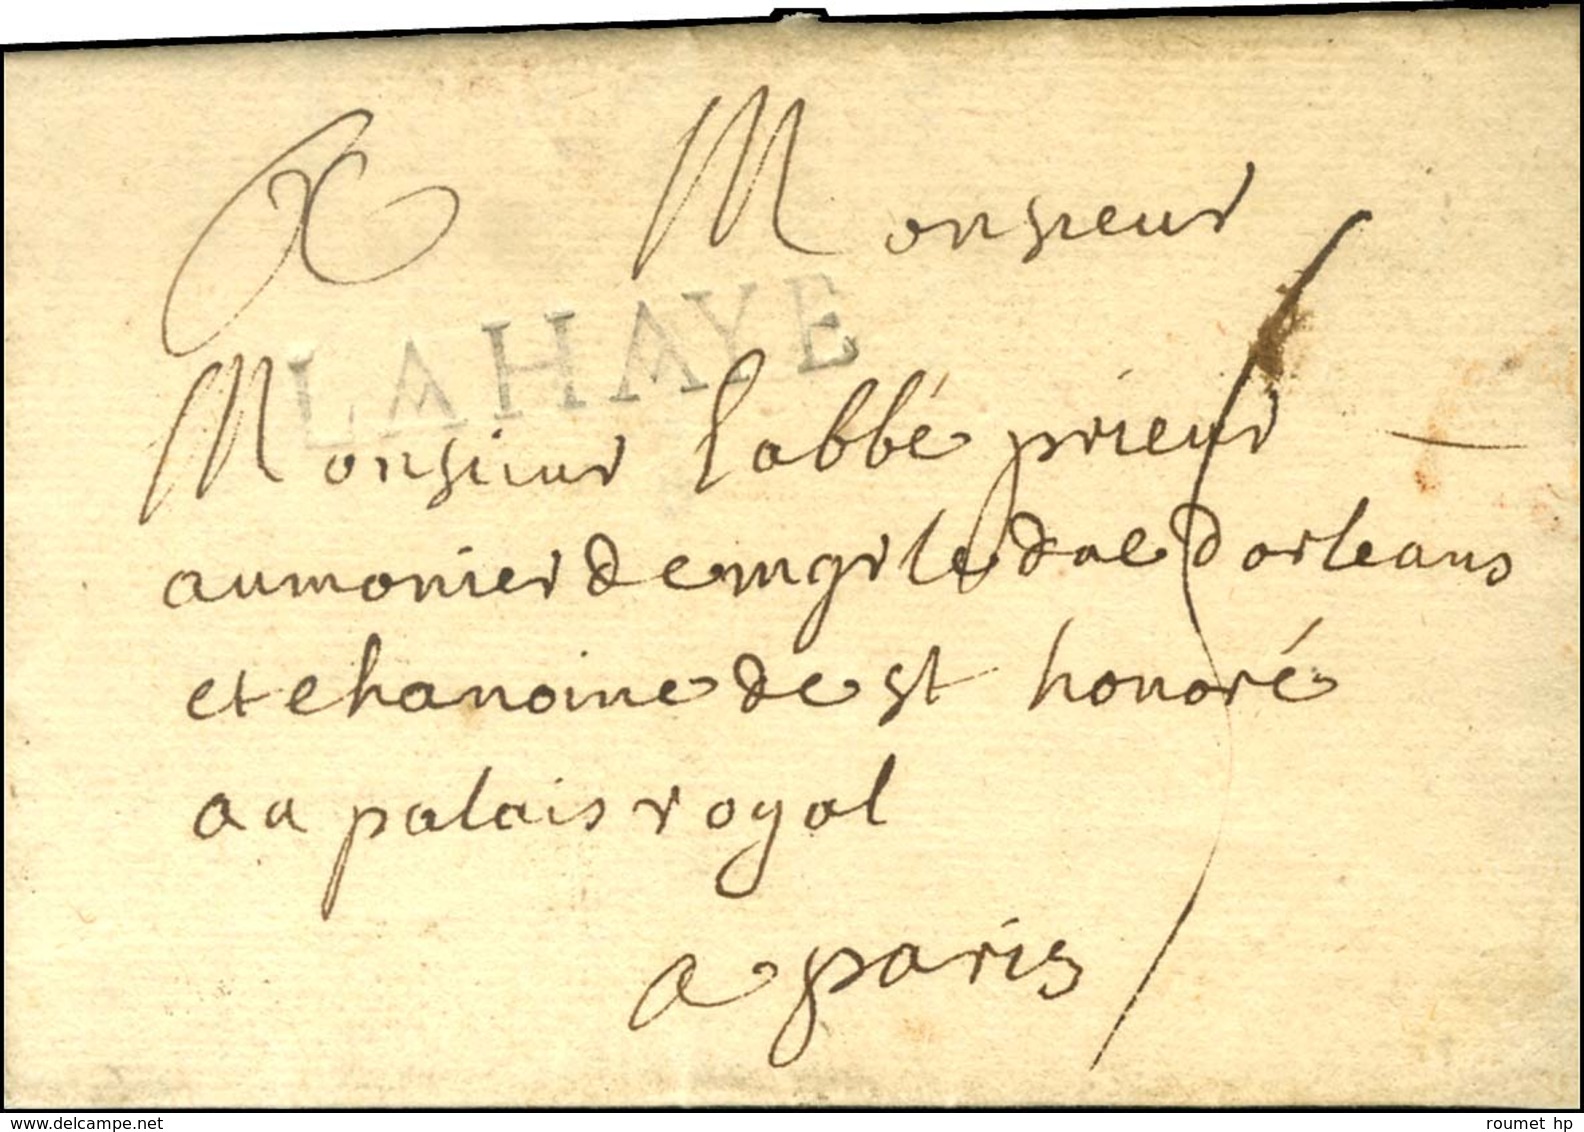 A Monsieur
LAHAYE
Monsieur l'abbé prieur
aumonier de mgr le duc d'orleans
et chanoine de st honoré
au palais royal
a paris
delcampe.net
roumet hp